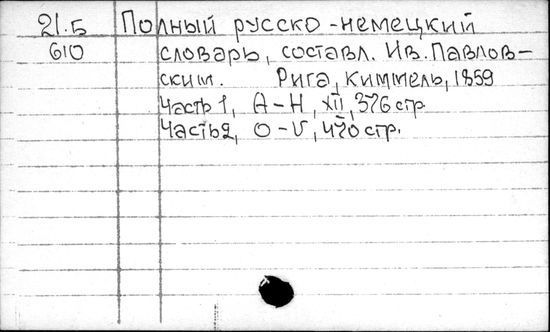 21.5 Полный русско-немецкий
610 словарь, составл. Ив. Павлов-
ским. Рига, Киммель, 1859
Часть 1, А-Н, XII, 376 стр
Часть 2, О-V, 470 стр.